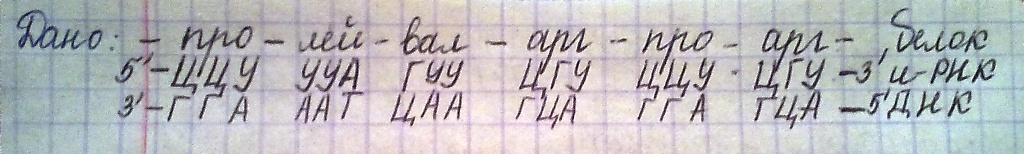 Дано: - про - лей - вал - арг - про - арг -, белок
5'-ЦЦУ УУА ГУУ ЦГУ ЦЦУ - ЦГУ -3' и-РНК
3'-ГГА ААТ ЦАА ГЦА ГГА ГЦА -5' ДНК